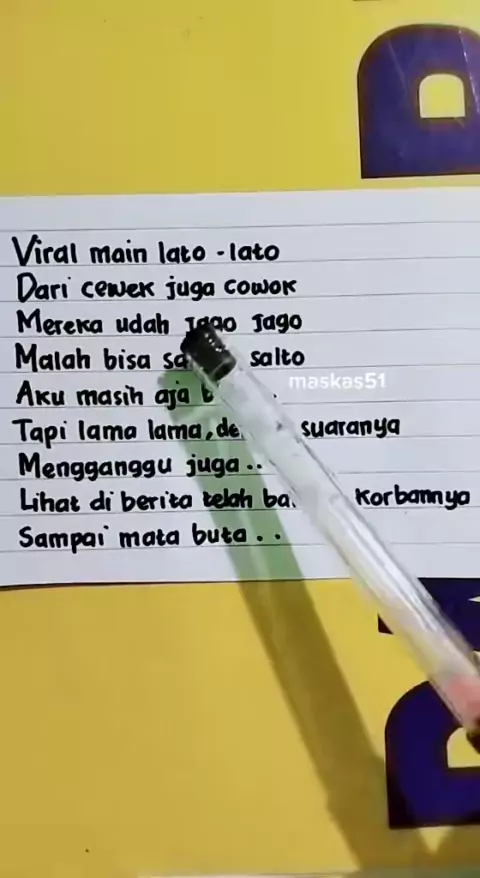 Viral main lato-lato
Dari cewek juga cowok
Mereka udah Jago Jago
Malah bisa salto
Aku masih aja
maskas51
Tapi lama lama, suaranya
Mengganggu juga..
Lihat di berita telah korbannya
Sampai mata buta..